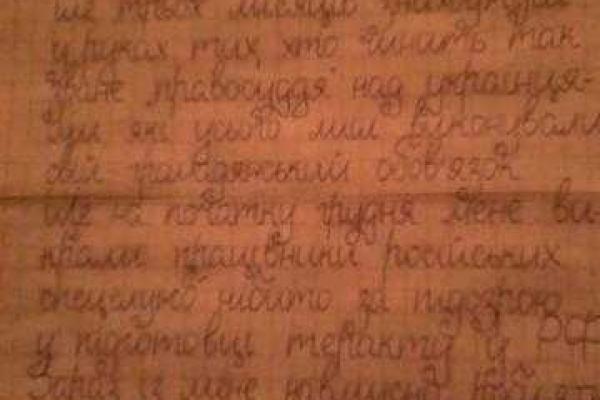 ше трьох місяців знаходжуся
у руках тих, хто чинить так
зване "правосуддя" над українця-
ми які усього лиш виконували
свій громадянський обов'язок
Ще на початку грудня мене ви-
крали працівники російських
спецслужб нібито за підозрою
у підготовці теракту у РФ
Зараз із мене